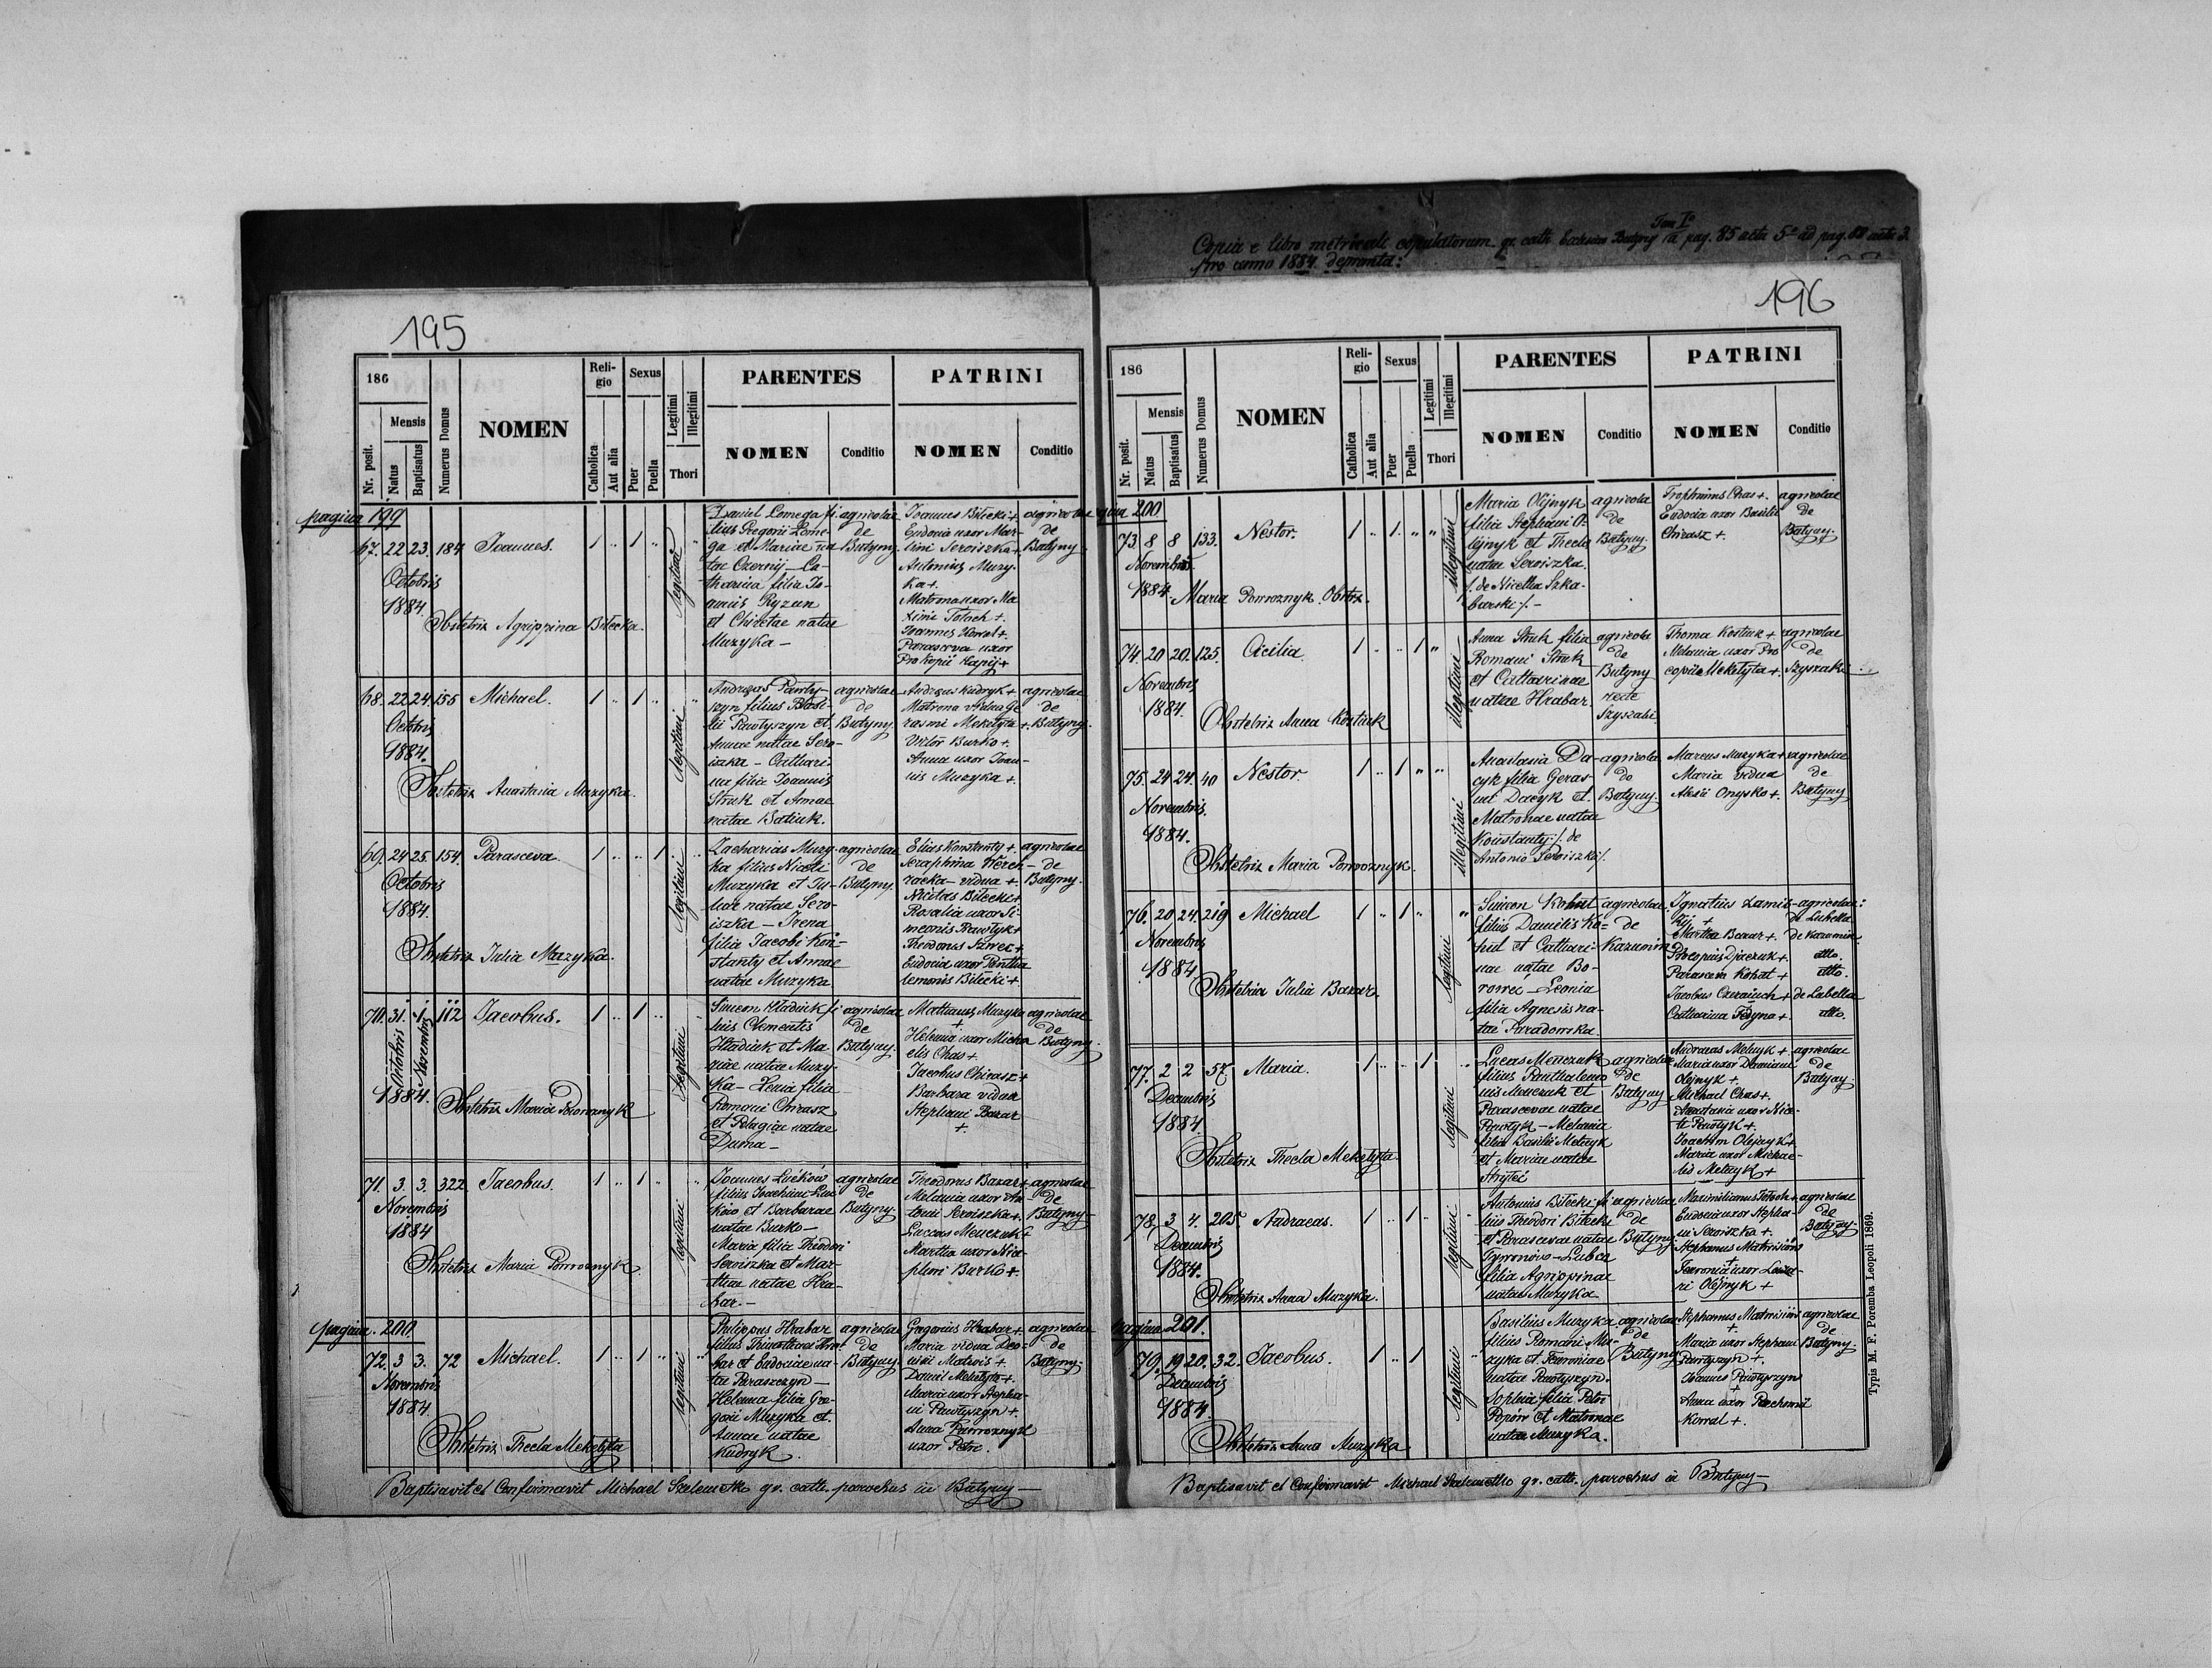 Tom I°
Copia e libro metricali copulatorum gr. cath. Ecclesiae Butyny a pag. 85 actu 5° ad pag. 88 actu 3.
pro anno 1884 deprompta:
195
186
Mensis
Nr. posit.
Natus
Baptisatus
Numerus Domus
NOMEN
Reli-
gio
Catholica
Aut alia
Sexus
Puer
Puella
Legitimi
Illegitimi
Thori
PARENTES
NOMEN
Conditio
PATRINI
NOMEN
Conditio
pagina 199
67. 22 23. 184 Joannes. 1 .. 1 ..
Octobris
1884.
Obstetrix Agrippina Biłecka.
legitimi
Daniel Łomega fi
lius Gregorii Łome-
ga et Mariae na
tae Czornij - Ca-
tharina filia Jo-
annis Ryzun
et Chivetae natae
Muzyka -
agricolae
de
Butyny
Joannes Biłecki +
Eudocia uxor Max-
imi Seroiszka +.
Antonius Muzy-
ka +.
Matrona uxor Ma
ximi Totoch +
Joannes Korol +.
Parasceva uxor
Prokopii Hapij +
agricolae
de
Butyny
68. 22 24. 156 Michael. 1 .. 1 ..
Octobris
1884.
Obstetrix Anastasia Muzyka.
legitimi
Andreas Pawły-
szyn filius Basi-
lii Pawłyszyn et
Annae natae Sero-
iszka - Cathari-
na filia Joannis
Struk et Annae
natae Batiuk.
agricolae
de
Butyny.
Andreas Kudryk +
Matrona vidua Ge
rasimi Mekełyta +.
Victor Burko +.
Anna uxor Joan-
nis Muzyka +.
agricolae
de
Butyny.
69. 24 25. 154. Parasceva. 1 .. .. 1
Octobris
1884.
Obstetrix Julia Muzyka.
legitimi
Zacharias Muzy-
ka filius Nicetae
Muzyka et Ju-
liae natae Sero-
iszka - Irena
filia Jacobi Kon-
stanty et Annae
natae Muzyka
agricolae
de
Butyny.
Elias Konstanty +
Seraphina Werch-
racka - vidua +.
Nicetas Biłecki +
Rosalia uxor Si-
meonis Pawłyk +
Theodorus Szwec +
Eudocia uxor Pantha
lemonis Biłecki +
agricolae
de
Butyny.
70. 31. 1. 112 Jacobus. 1 .. 1 ..
Octobris
Novembris
1884.
Obstetrix Maria Powroznyk
legitimi
Simeon Hładiuk fi
lius Clementis
Hładiuk et Ma
riae natae Muzy-
ka - Xenia filia
Romani Chirasz
et Pelagiae natae
Duma -
agricolae
de
Butyny.
Mathaeus Muzyka
+
Helenia uxor Micha
elis Chas +
Jacobus Chirasz +
Barbara vidua
Stephani Bazar
+.
agricolae
de
Butyny.
71. 3. 3. 322 Jacobus. 1 .. 1 ..
Novembris
1884
Obstetrix Maria Powroznyk
legitimi
Joannes Luików
filius Joachimi Lui
ków et Barbarae
natae Burko -
Maria filia Theodori
Seroiszka et Mar-
thae natae Hra-
bar. -
agricolae
de
Butyny
Theodorus Bazar +
Melania uxor An-
tonii Seroiszka +.
Luccas Menczuk +
Martha uxor Nice-
phori Burko +.
agricolae
de
Butyny
pagina. 200
72. 3 3. 72 Michael. 1 .. 1 ..
Novembris
1884.
Obstetrix Thecla Mekełyta
legitimi
Philippus Hrabar
filius Timothaei Hra-
bar et Eudociae na-
tae Paraszczyn -
Helena filia Gre-
gorii Muzyka et
Annae natae
Kudryk.
agricolae
de
Butyny
Gregorius Hrabar +.
Maria vidua Leo-
ntii Matwis +.
Daniil Mekełyta +.
Maria uxor Stepha-
ni Pawłyszyn +.
Anna Powroznyk
uxor Petri.
agricolae
de
Butyny
Baptisavit et Confirmavit Michael gr. cath. parochus in Butyny -
196
186
Mensis
Nr. posit.
Natus
Baptisatus
Numerus Domus
NOMEN
Reli-
gio
Catholica
Aut alia
Sexus
Puer
Puella
Legitimi
Illegitimi
Thori
PARENTES
NOMEN
Conditio
PATRINI
NOMEN
Conditio
pagina 200
73. 8 8 133. Nestor. 1 .. 1. ..
Novembris
1884. Maria Powroznyk. Obstetr.
illegitimi
Maria Olijnyk
filia Stephani O-
lijnyk et Thecla
natae Seroiszka.
/. de Nicetha Szka-
barski /. -
agricola
de
Butyny.
Trophimus Chas +.
Eudocia uxor Basilii
Chirasz +.
agricolae
de
Butyny.
74. 20 20. 125. Cicilia. 1 .. .. 1
Novembris
1884.
Obstetrix Anna Kostiuk
illegitimi
Anna Struk filia
Romani Struk
et Catharinae
natae Hrabar.
agricola
de
Butyny
recte
Szyszaki
Thoma Kostiuk +
Melania uxor Pro
copii Mekełyta +.
agricolae
de
Szyszaki
75. 24 24. 40 Nestor. 1 .. 1 ..
Novembris.
1884.
Obstetrix Maria Powroznyk.
illegitimi
Anastasia Da-
cyk filia Geras-
imi Dacyk et
Matronae natae
Konstanty /. de
Antonio Seroiszka /.
agricola
de
Butyny.
Marcus Muzyka +
Maria vidua
Alexii Onysko +.
agricolae
de
Butyny
76. 20 24. 219 Michael 1 .. 1 ..
Novembris
1884
Obstetrix Julia Bazar
legitimi
Simeon Kohut
filius Danielis Ko-
hut et Cathari-
nae natae Bo-
rowec - Leonia
filia Agnesis na-
tae Paradowska.
agricolae
de
Kazumin
Ignatius
+
Martha Bazar +.
Procopius Djaczuk +.
Parasceva Kohut +
Jacobus +
Catharina Fedyna +.
agricolae:
de Lubella
de Kazumin.
dtto.
dtto.
de Lubella
dtto.
77. 2 2 57. Maria. 1 .. .. 1
Decembris
1884.
Obstetrix Thecla Mekełyta
legitimi
Lucas Menczuk
filius Panthalemo
nis Menczuk et
Parascevae natae
Pawłyk - Melania
filia Basilii Melnyk
et Mariae natae
agricolae
de
Butyny
Andraeas Melnyk +.
Maria uxor Damiani
Olejnyk +.
Michael Chas +.
Anastasia uxor Nice-
tae Pawłyk +.
Joachim Olejnyk +.
Maria uxor Michae-
lis Melnyk +
agricolae
de
Butyny
78. 3 4. 205. Andraeas. 1 .. 1 ..
Decembris
1884.
Obstetrix Anna Muzyka.
legitimi
Antonius Biłecki fi
lius Theodori Biłecki
et Parascevae natae
- Lubca
filia Agrippinae
natae Muzyka
agricolae
de
Butyny.
Maximilianus Totoch +
Eudocia uxor Stepha-
ni Seroiszka +.
Stephanus Matwisiów
+
Fewronia uxor Laza-
ri Olejnyk +
agricolae
de
Butyny.
pagina 201.
79. 19 20. 32. Jacobus. 1 .. 1
Decembris
1884.
Obstetrix Anna Muzyka
legitimi
Basilius Muzyka
filius Romani Mu-
zyka et Fewroniae
natae Pawłyszyn.
Sophia filia Petri
Popów et Matronae
natae Muzyka.
agricolae
de
Butyny
Stephanus Matwisiów
+
Maria uxor Stephani
Pawłyszyn +.
Joannes Pawłyszyn
+
Anna uxor Pachomii
Korol +.
agricolae
de
Butyny.
Baptisavit et Confirmavit Michael gr. cath. parochus in Butyny -
Typis M. F. Poremba Leopoli 1869.